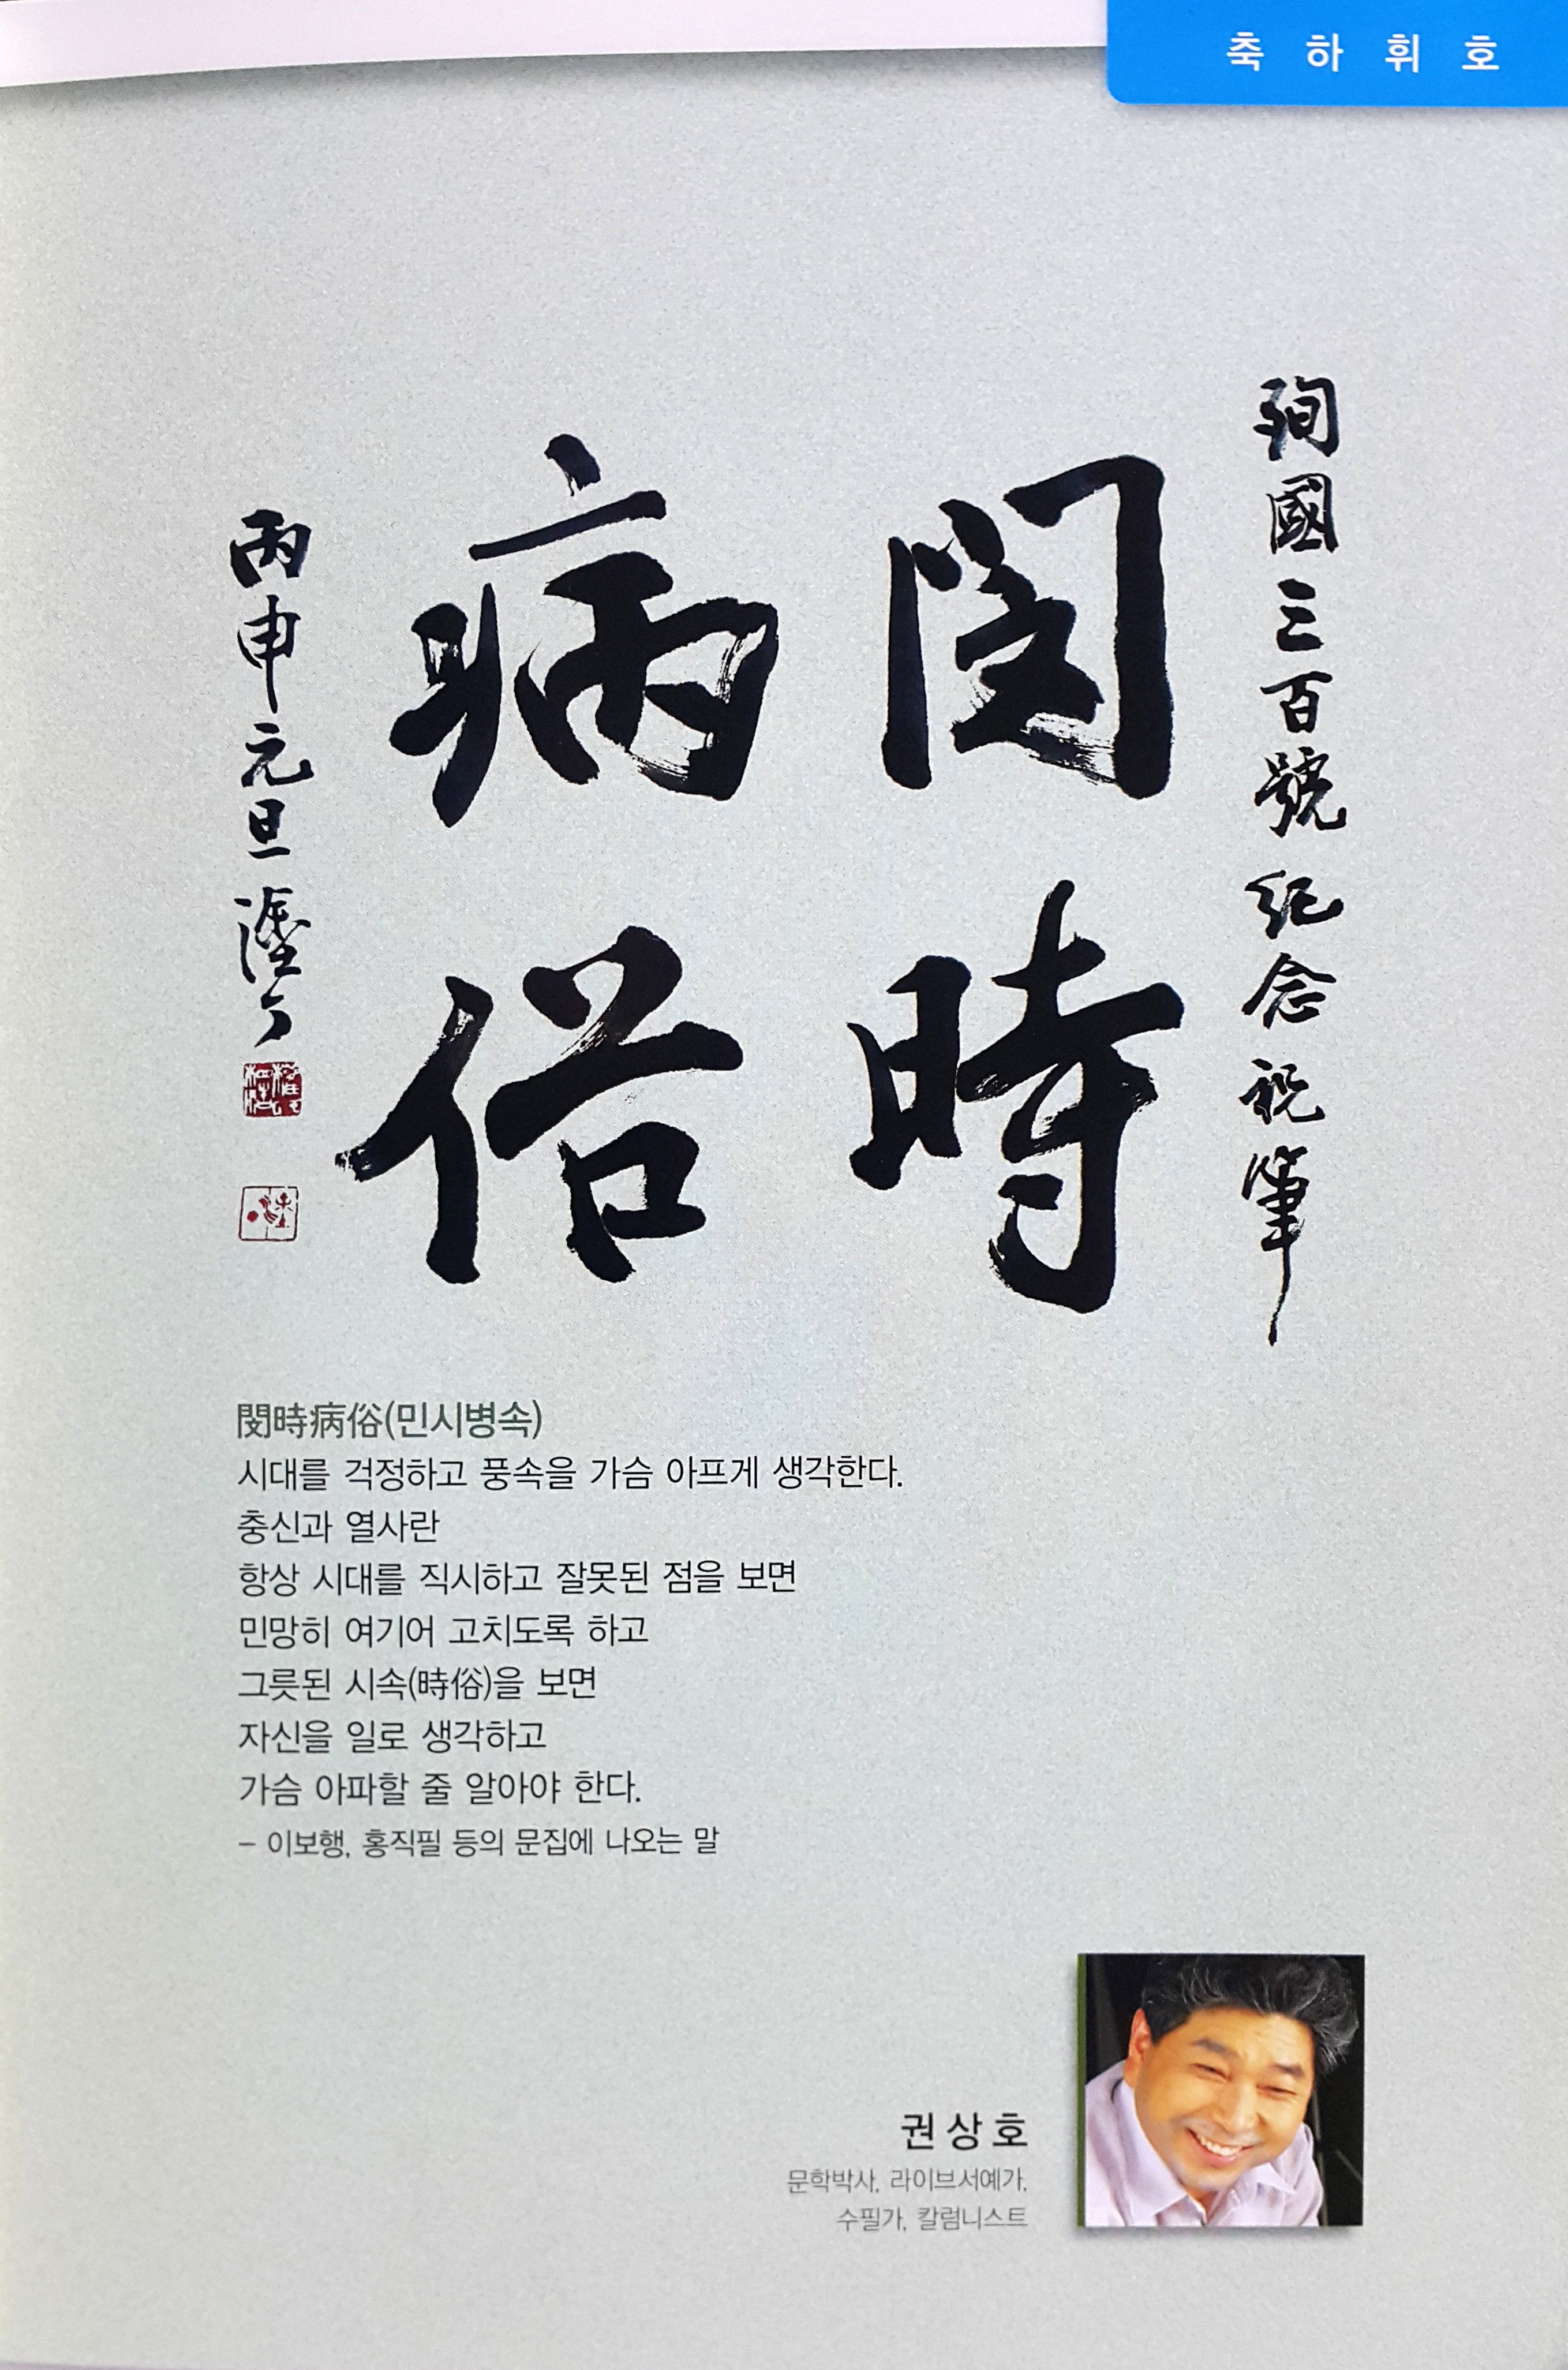 축하휘호
殉國三百號 紀念 祝筆
閔時
病俗
丙申元旦 塗丁
閔時病俗(민시병속)
시대를 걱정하고 풍속을 가슴 아프게 생각한다.
충신과 열사란
항상 시대를 직시하고 잘못된 점을 보면
민망히 여기어 고치도록 하고
그릇된 시속(時俗)을 보면
자신을 일로 생각하고
가슴 아파할 줄 알아야 한다.
– 이보행, 홍직필 등의 문집에 나오는 말
권상호
문학박사, 라이브서예가,
수필가, 칼럼니스트